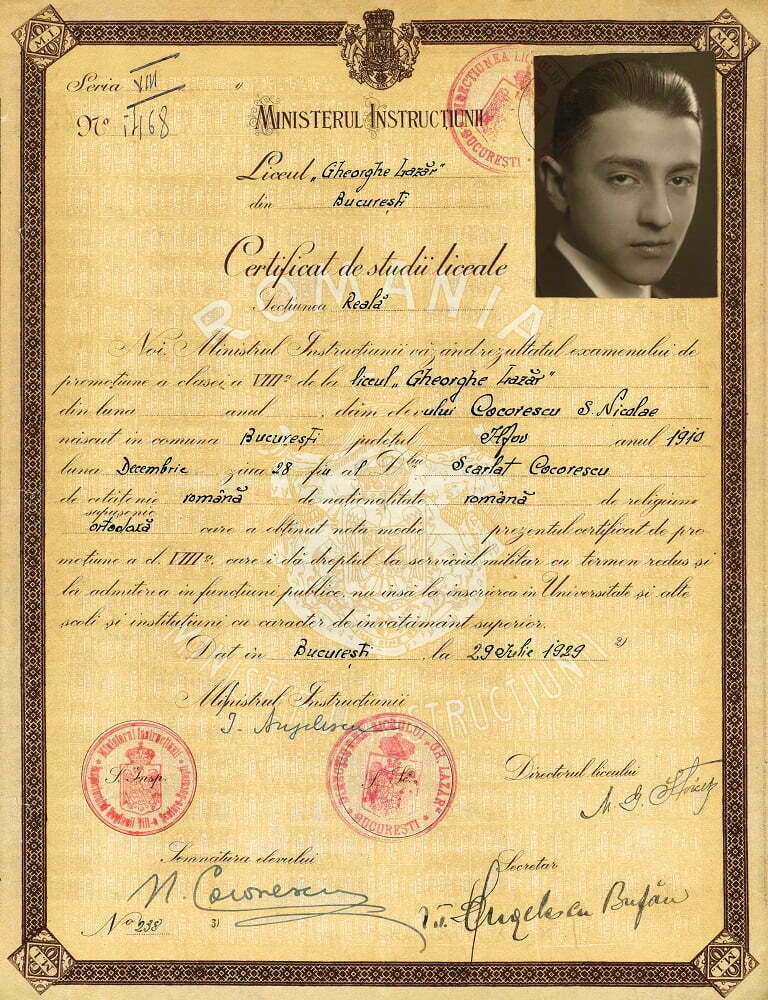 Seria VIII
No 1468
MINISTERUL INSTRUCȚIUNII
Liceul „Gheorghe Lazăr"
din București
Certificat de studii liceale
Secțiunea Reală
ROMANIA
Noi, Ministrul Instrucțiunii văzând rezultatul examenului de
promoțiune a clasei a VIII a de la liceul „Gheorghe Lazăr"
din luna anul , dăm elevului Cocorescu S. Nicolae
născut în comuna București județul Ilfov anul 1910
luna Decembrie ziua 28 fiu al D-lui Scarlat Cocorescu
de cetățenie română de naționalitate română de religiune
supușenie
ortodoxă care a obținut nota medie prezentul certificat de pro
moțiune a cl. VIII a, care-i dă dreptul la serviciul militar cu termen redus și
la admiterea in funcțiuni publice, nu însă la înscrierea in Universitate și alte
școli și instituțiuni cu caracter de învățământ superior.
Dat în București la 29 Iulie 1929 2)
Ministrul Instrucțiunii
Angelescu
Directorul liceului
M. G.
DIRECȚIUNEA LICEULUI „GH. LAZĂR"
BUCUREȘTI
Ministerul Instrucțiunii
S. Insp.
Semnătura elevului
N. Cocorescu
Secretar
Angelescu Bufău
No 238 3)
M.I.